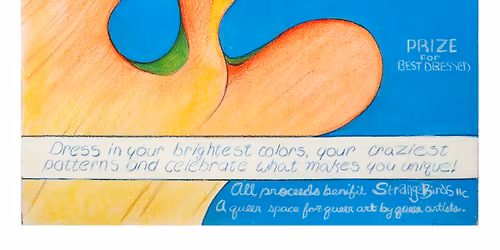 PRIZE
FOR
BEST DRESSED
Dress in your brightest colors, your craziest
patterns and celebrate what makes you unique!
All proceeds benifit StrangeBirds LLC
A queer space for queer art by queer artists.